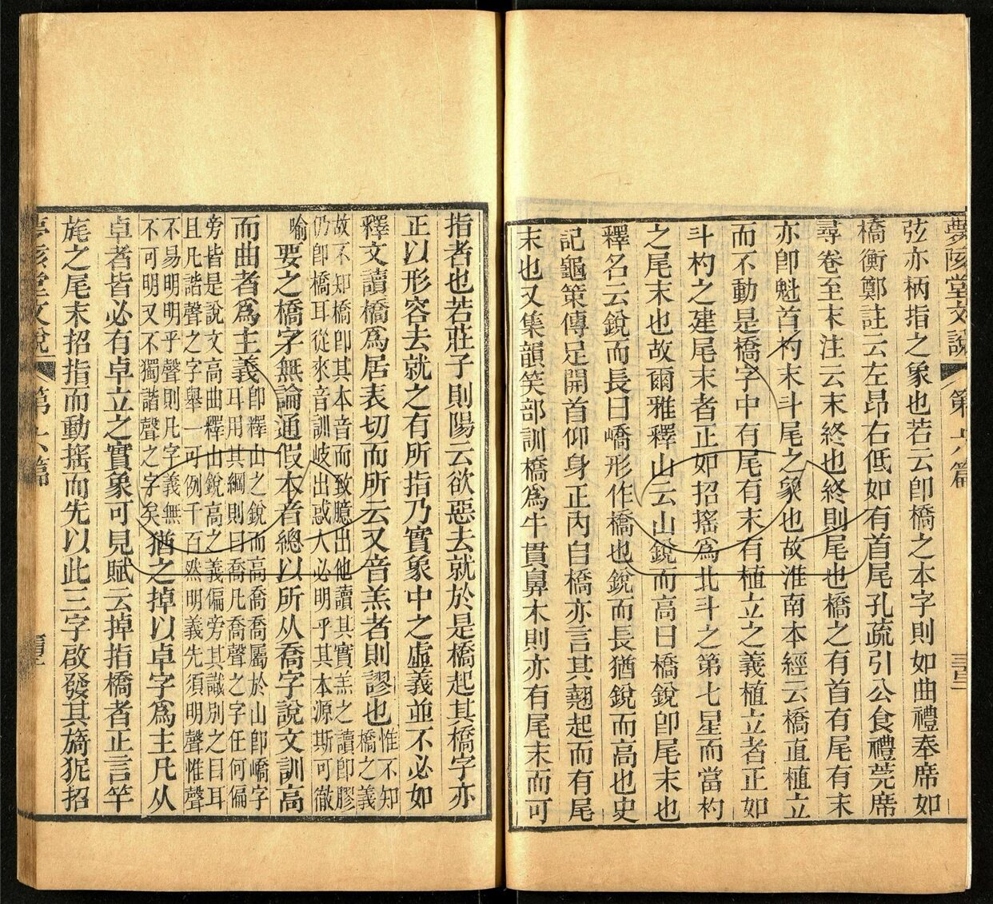 夢陔堂文說 第 篇
弦亦柄指之象也若云卽橋之本字則如曲禮奉席如
橋衡鄭註云左昂右低如有首尾孔疏引公食禮莞席
尋卷至末注云末終也終則尾也橋之有首有尾有末
亦卽魁首杓末斗尾之象也故淮南本經云橋直植立
而不動是橋字中有尾有末有植立之義植立者正如
斗杓之建尾末者正如招搖爲北斗之第七星而當杓
之尾末也故爾雅釋山云山銳而高曰橋銳卽尾末也
釋名云銳而長曰嶠形作橋也銳而長猶銳而高也史
記龜策傳足開首仰身正內自橋亦言其翹起而有尾
末也又集韻笑部訓橋爲牛貫鼻木則亦有尾末而可
指者也若莊子則陽云欲惡去就於是橋起其橋字亦
正以形容去就之有所指乃實象中之虛義並不必如
釋文讀橋爲居表切而所云又音羔者則謬也惟不知
橋之義
故不知橋卽其本音而致臆出他讀其實羔之讀卽膠
仍卽橋耳從來音訓岐出惑人必明乎其本源斯可徹
喻 要之橋字無論通假本者總以所从喬字說文訓高
而曲者爲主義卽釋山之銳而高喬喬屬於山卽嶠字
耳用其綱則曰喬凡喬聲之字任何偏
旁皆是說文高曲釋山銳高之義偏旁其識別之曰耳
且凡諧聲之字舉一可例千百然明義先須明聲惟聲
不易明明乎聲則凡字義無
不可明又不獨諧聲之字矣猶之掉以卓字爲主凡从
卓者皆必有卓立之實象可見賦云掉指橋者正言竿
旄之尾末招指而動搖而先以此三字啟發其旖旎招
夢陔堂文說 第 篇